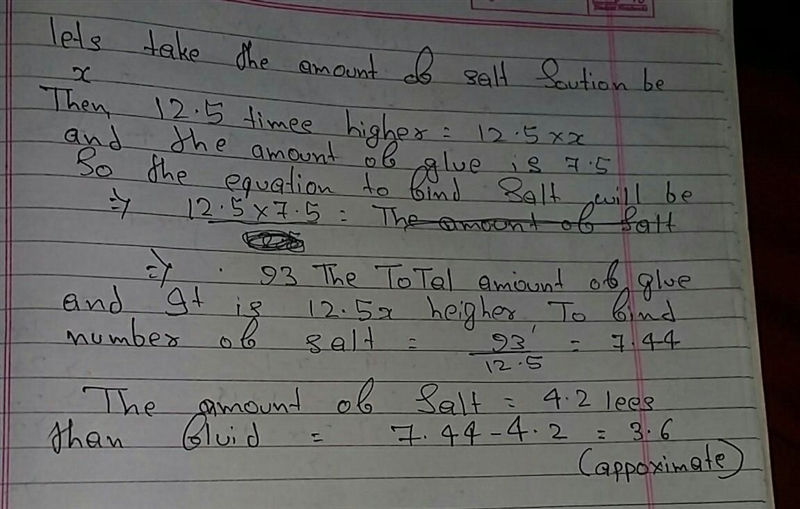 lets take the amount ob salt Soution be
x
Then, 12.5 timee higher = 12.5 x x
and the amount ob glue is 7.5
So the equation to bind Salt will be
=> 12.5 x 7.5 = The amount ob Salt
=> . 93 The ToTal amount ob glue
and It is 12.5x heigher To bind
number ob salt = 93 / 12.5 = 7.44
The amount ob Salt = 4.2 lees
than bluid = 7.44 - 4.2 = 3.6
(appoximate)